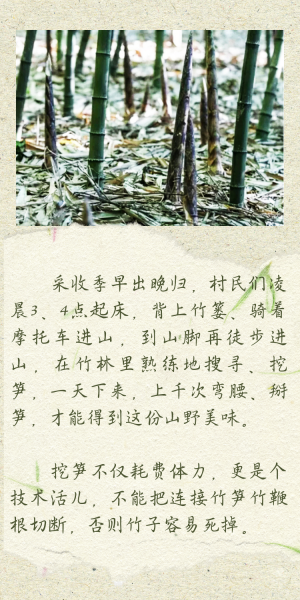 采收季早出晚归，村民们凌
晨3、4点起床，背上竹篓、骑着
摩托车进山，到山脚再徒步进
山，在竹林里熟练地搜寻、挖
笋，一天下来，上千次弯腰、掰
笋，才能得到这份山野美味。
挖笋不仅耗费体力，更是个
技术活儿，不能把连接竹笋竹鞭
根切断，否则竹子容易死掉。